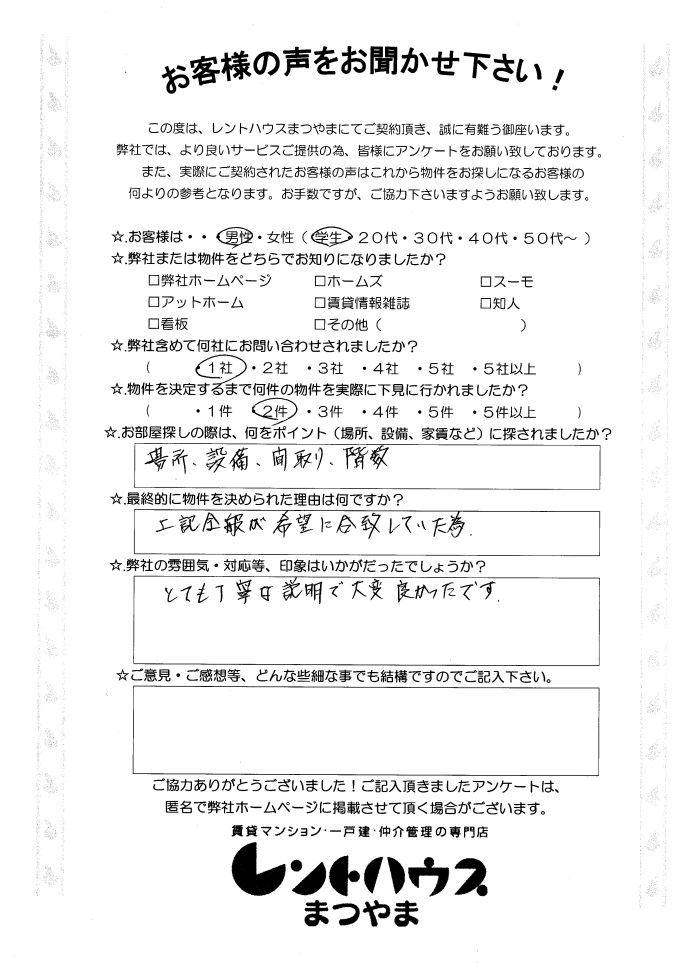 お客様の声をお聞かせ下さい！
この度は、レントハウスまつやまにてご契約頂き、誠に有難う御座います。
弊社では、より良いサービスご提供の為、皆様にアンケートをお願い致しております。
また、実際にご契約されたお客様の声はこれから物件をお探しになるお客様の
何よりの参考となります。お手数ですが、ご協力下さいますようお願い致します。
☆.お客様は・・・男性・女性（ 学生・２０代・３０代・４０代・５０代～ ）
☆.弊社または物件をどちらでお知りになりましたか？
□弊社ホームページ □ホームズ □スーモ
□アットホーム □賃貸情報雑誌 □知人
□看板 □その他（ ）
☆.弊社含めて何社にお問い合わせされましたか？
（ ・１社 ・２社 ・３社 ・４社 ・５社 ・５社以上 ）
☆.物件を決定するまで何件の物件を実際に下見に行かれましたか？
（ ・１件 ・２件 ・３件 ・４件 ・５件 ・５件以上 ）
☆.お部屋探しの際は、何をポイント（場所、設備、家賃など）に探されましたか？
場所、設備、間取り、階数
☆.最終的に物件を決められた理由は何ですか？
上記全般が希望に合致していた為.
☆.弊社の雰囲気・対応等、印象はいかがだったでしょうか？
とても丁寧な説明で大変良かったです.
☆ご意見・ご感想等、どんな些細な事でも結構ですのでご記入下さい。
ご協力ありがとうございました！ご記入頂きましたアンケートは、
匿名で弊社ホームページに掲載させて頂く場合がございます。
賃貸マンション・一戸建・仲介管理の専門店
レントハウス
まつやま